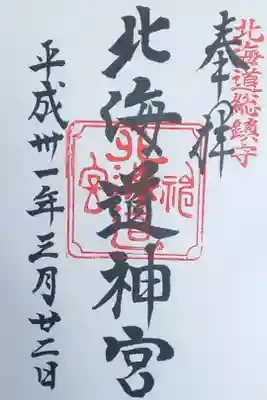 北海道総鎮守
奉拝
北海道神宮
平成卅一年三月廿二日